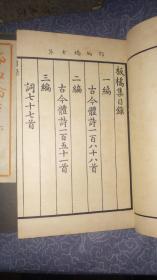 板橋集目錄
一編
古今體詩一百八十八首
二編
古今體詩一百五十一首
三編
詞七十七首